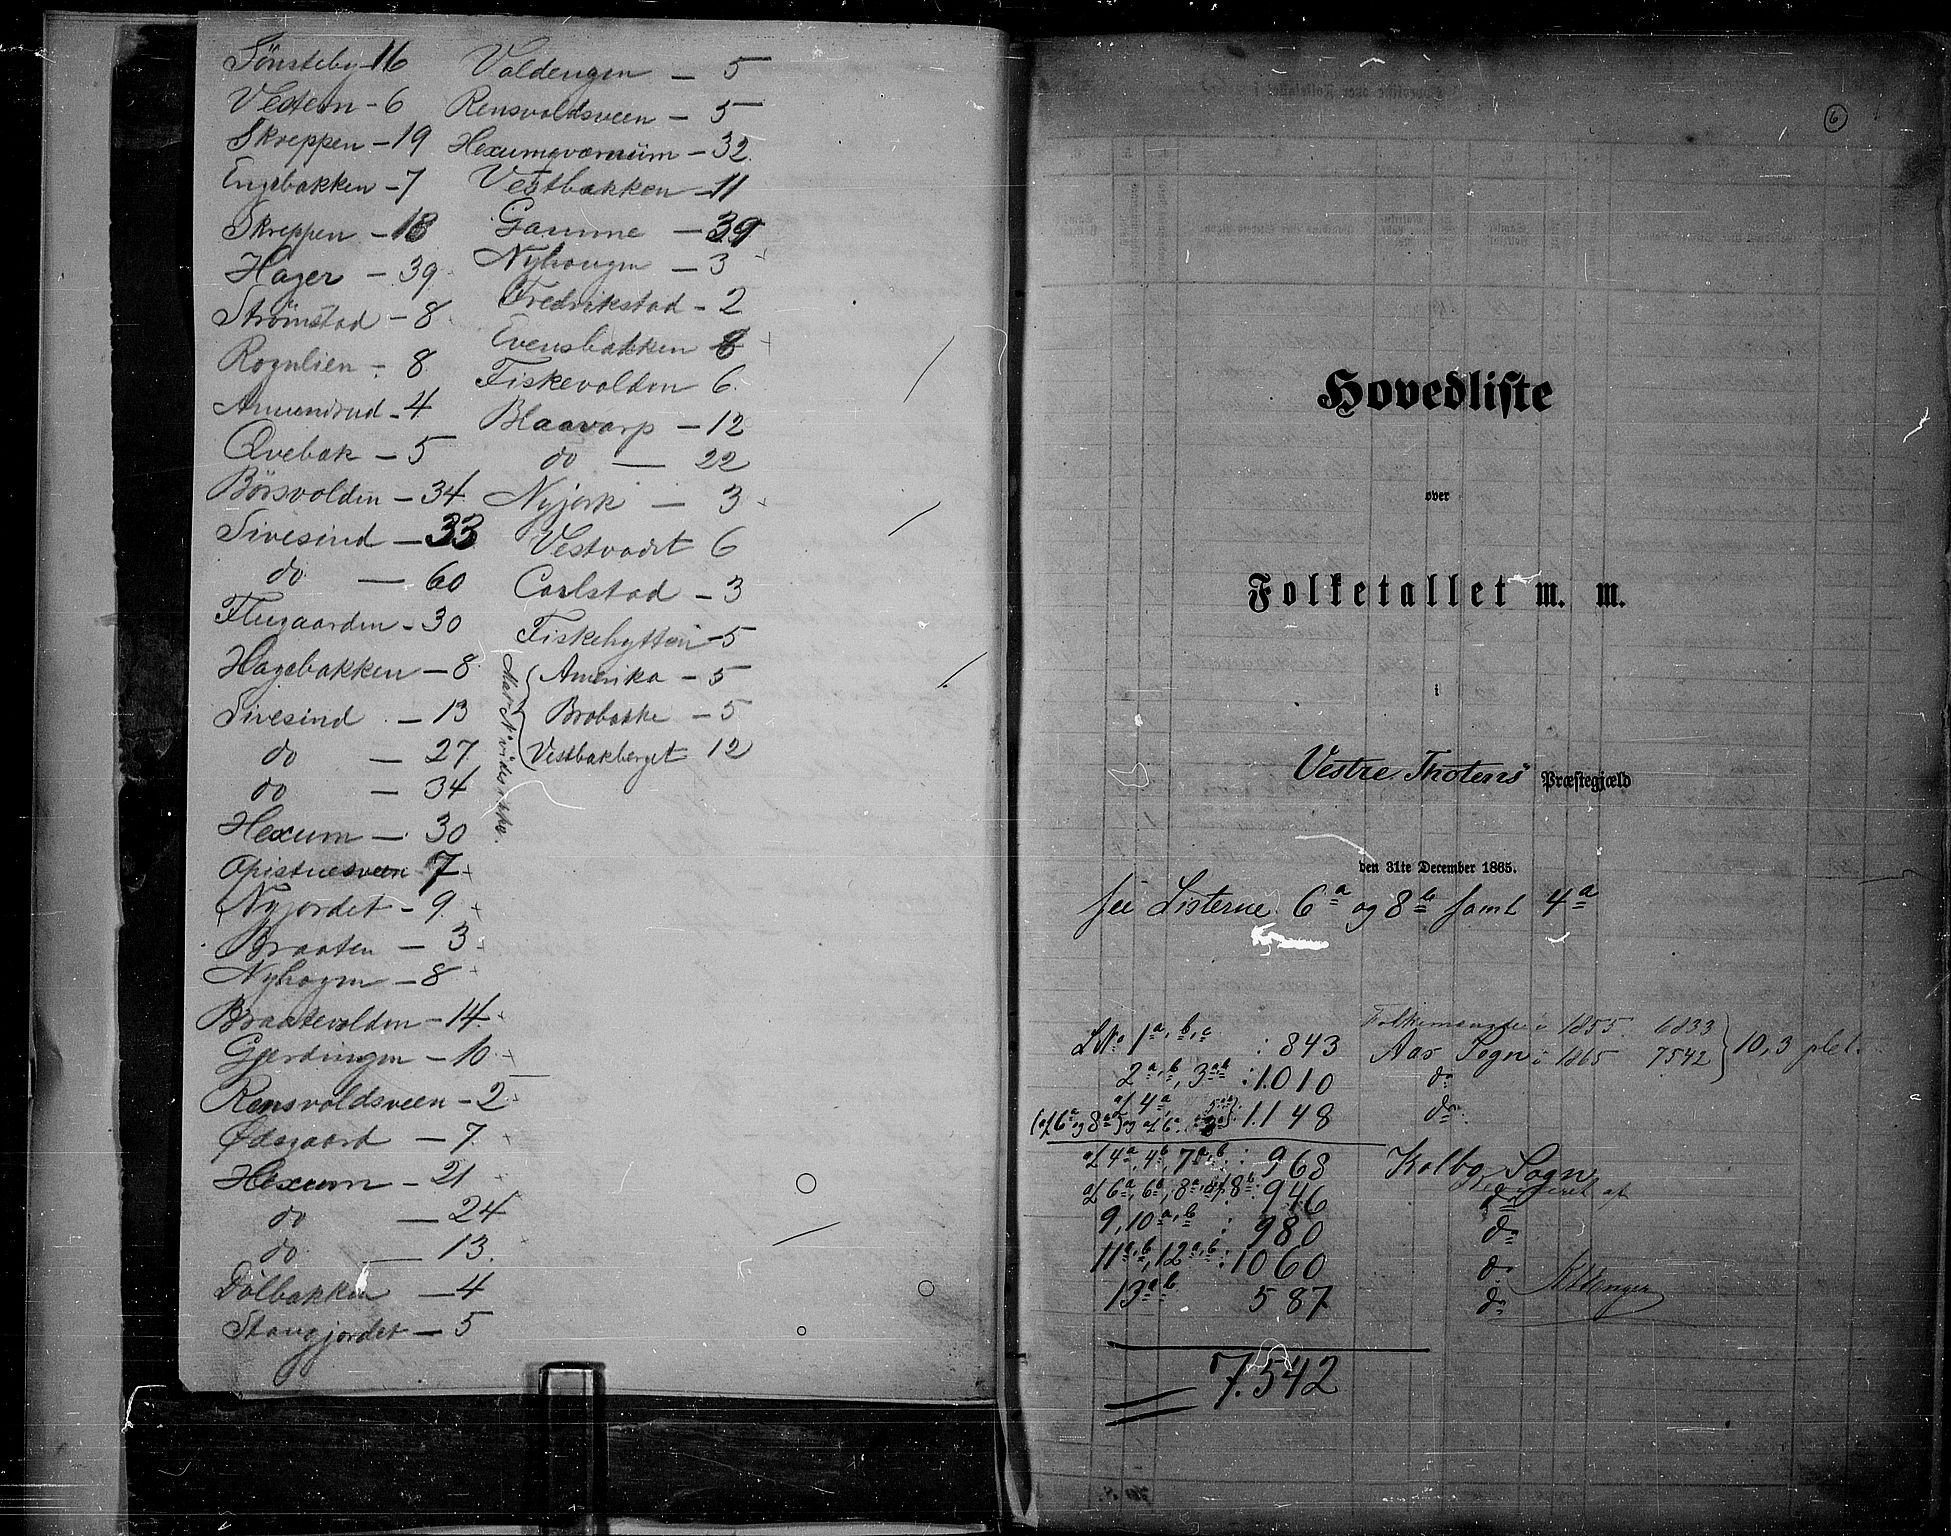 Sönsteby - 16
Vestern - 6
Skreppen - 19
Engebakken - 7
Skreppen - 18
Hager - 39
Strömstad - 8
Rognlien - 8
Amundrud - 4
Qvebak - 5
Börsvolden - 34
Sivesind - 33
do - 60
Flugaarden - 30
Hagebakken - 8
Sivesind - 13
do - 27
do - 34
Hexum - 30
Opistuesveen 7
Nyjordet - 9
Braaten - 3
Nyhagen - 8
Braatevolden - 14
Gjerdingen - 10
Rensvoldsveen - 2
Ødegaard - 7
Hexum - 21
do - 24
do - 13.
Dölbakken - 4
Staugjordet - 5
Voldengen - 5
Rensvoldsveen - 5
Hexumqværnüm - 32
Vestbakken - 11
Gaarume - 39
Nyhaugen - 3
Fredrikstad - 2
Evensbakken 8
Fiskevolden 6
Blaavarp - 12
do - 22
Nyjork - 3
Vestvodt 6
Carlstad - 3
Fiskehytten - 5
Amerika - 5
Brobakke - 5
Vestbakberget 12
6
Hovedliste
over
Folketallet m. m.
i
Vestre Thotens Præstegjæld
den 31te December 1865.
see Listerne 6a og 8b samt 4a
Folkemængde i 1855 6833
LNo 1a, b, c : 843 Aas Sogn i 1865 7542 } 10,3 pCt.
2a, b, 3a b : 1010 do
af 4a
(af 6a og 8a) og af 6a 1148 do
af 4a, 4b, 7a, b : 968 Kolbo Sogn
af 6a, 6b, 8a, af 8b : 946 do
9, 10a, b : 980 do
11a, b, 12a, b : 1060 do
13a b 587 do
7.542